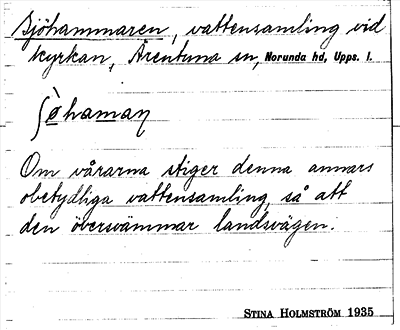 Sjöhammaren, vattensamling vid
kyrkan, Ärentuna sn, Norunda hd, Upps. l.
Om vårarna stiger denna annars
obetydliga vattensamling, så att
den översvämmar landsvägen.
STINA HOLMSTRÖM 1935